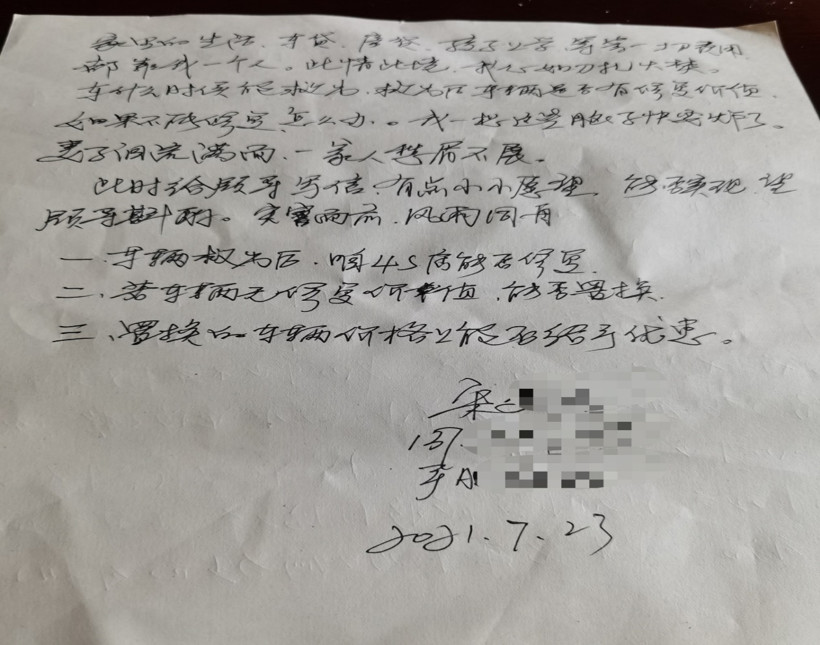 家里的生活、车贷、房贷、孩子上学等等一切费用
都靠我一个人。此情此境,我心如刀扎火燎。
车什么时候能救出,救出后车辆是否有修复价值,
如果不够修复,怎么办。我一想这些脑子快要炸了。
妻子泪流满面,一家人愁眉不展。
此时给顾哥写信,有点小小愿望,能否实现,望
顾哥斟酌。实需而求,风雨同舟
一、车辆救出后,咱4S店能否修复
二、若车辆无修复价值,能否置换
三、置换的车辆价格上能否给予优惠。
2021.7.23